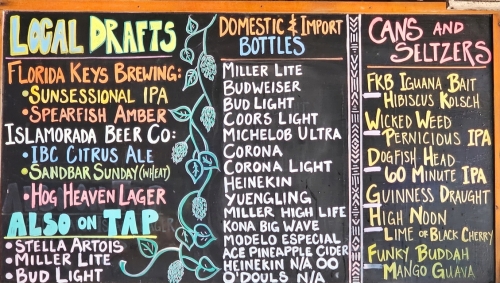 LOCAL DRAFTS
FLORIDA KEYS BREWING:
• SUNSESSIONAL IPA
• SPEARFISH AMBER
ISLAMORADA BEER CO:
• IBC CITRUS ALE
• SANDBAR SUNDAY (WHEAT)
• HOG HEAVEN LAGER
ALSO ON TAP
• STELLA ARTOIS
• MILLER LITE
• BUD LIGHT
DOMESTIC & IMPORT
BOTTLES
MILLER LITE
BUDWEISER
BUD LIGHT
COORS LIGHT
MICHELOB ULTRA
CORONA
CORONA LIGHT
HEINEKIN
YUENGLING
MILLER HIGH LIFE
KONA BIG WAVE
MODELO ESPECIAL
ACE PINEAPPLE CIDER
HEINEKIN N/A 00
O'DOULS N/A
CANS AND
SELTZERS
FKB IGUANA BAIT
HIBISCUS KOLSCH
WICKED WEED
PERNICIOUS IPA
DOGFISH HEAD
60 MINUTE IPA
GUINNESS DRAUGHT
HIGH NOON
LIME OR BLACK CHERRY
FUNKY BUDDAH
MANGO GUAVA